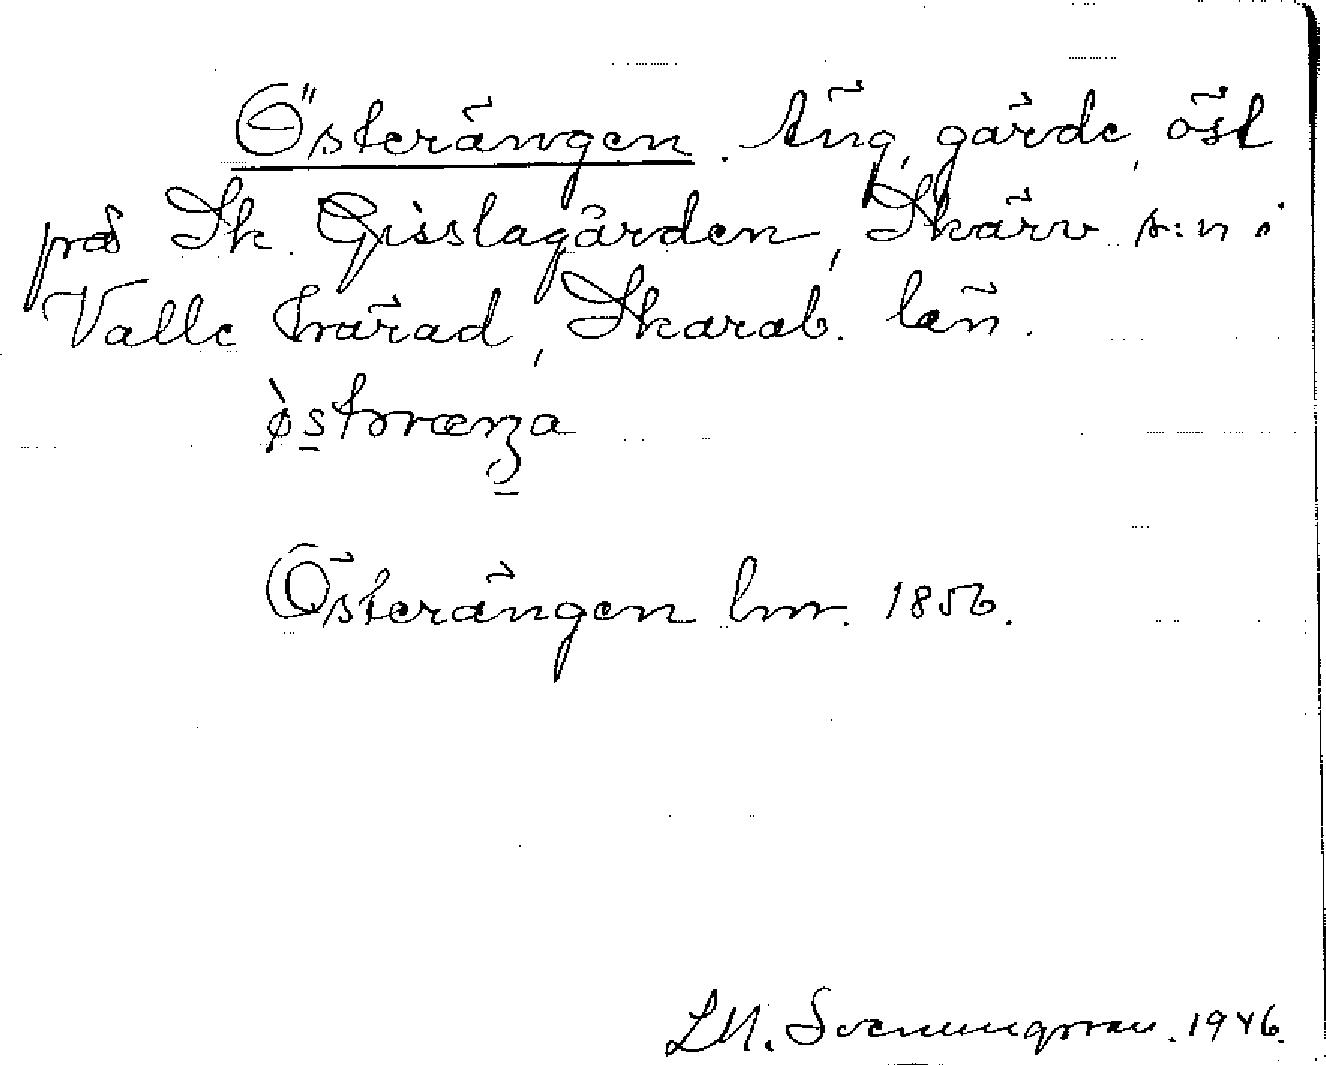 Österängen. Äng, gärde, öst
på Sk. Gisslagården, Skärv s:n i
Valle härad, Skarab. län.
Österängen lm. 1856.
L.M. Svenungsson. 1946.